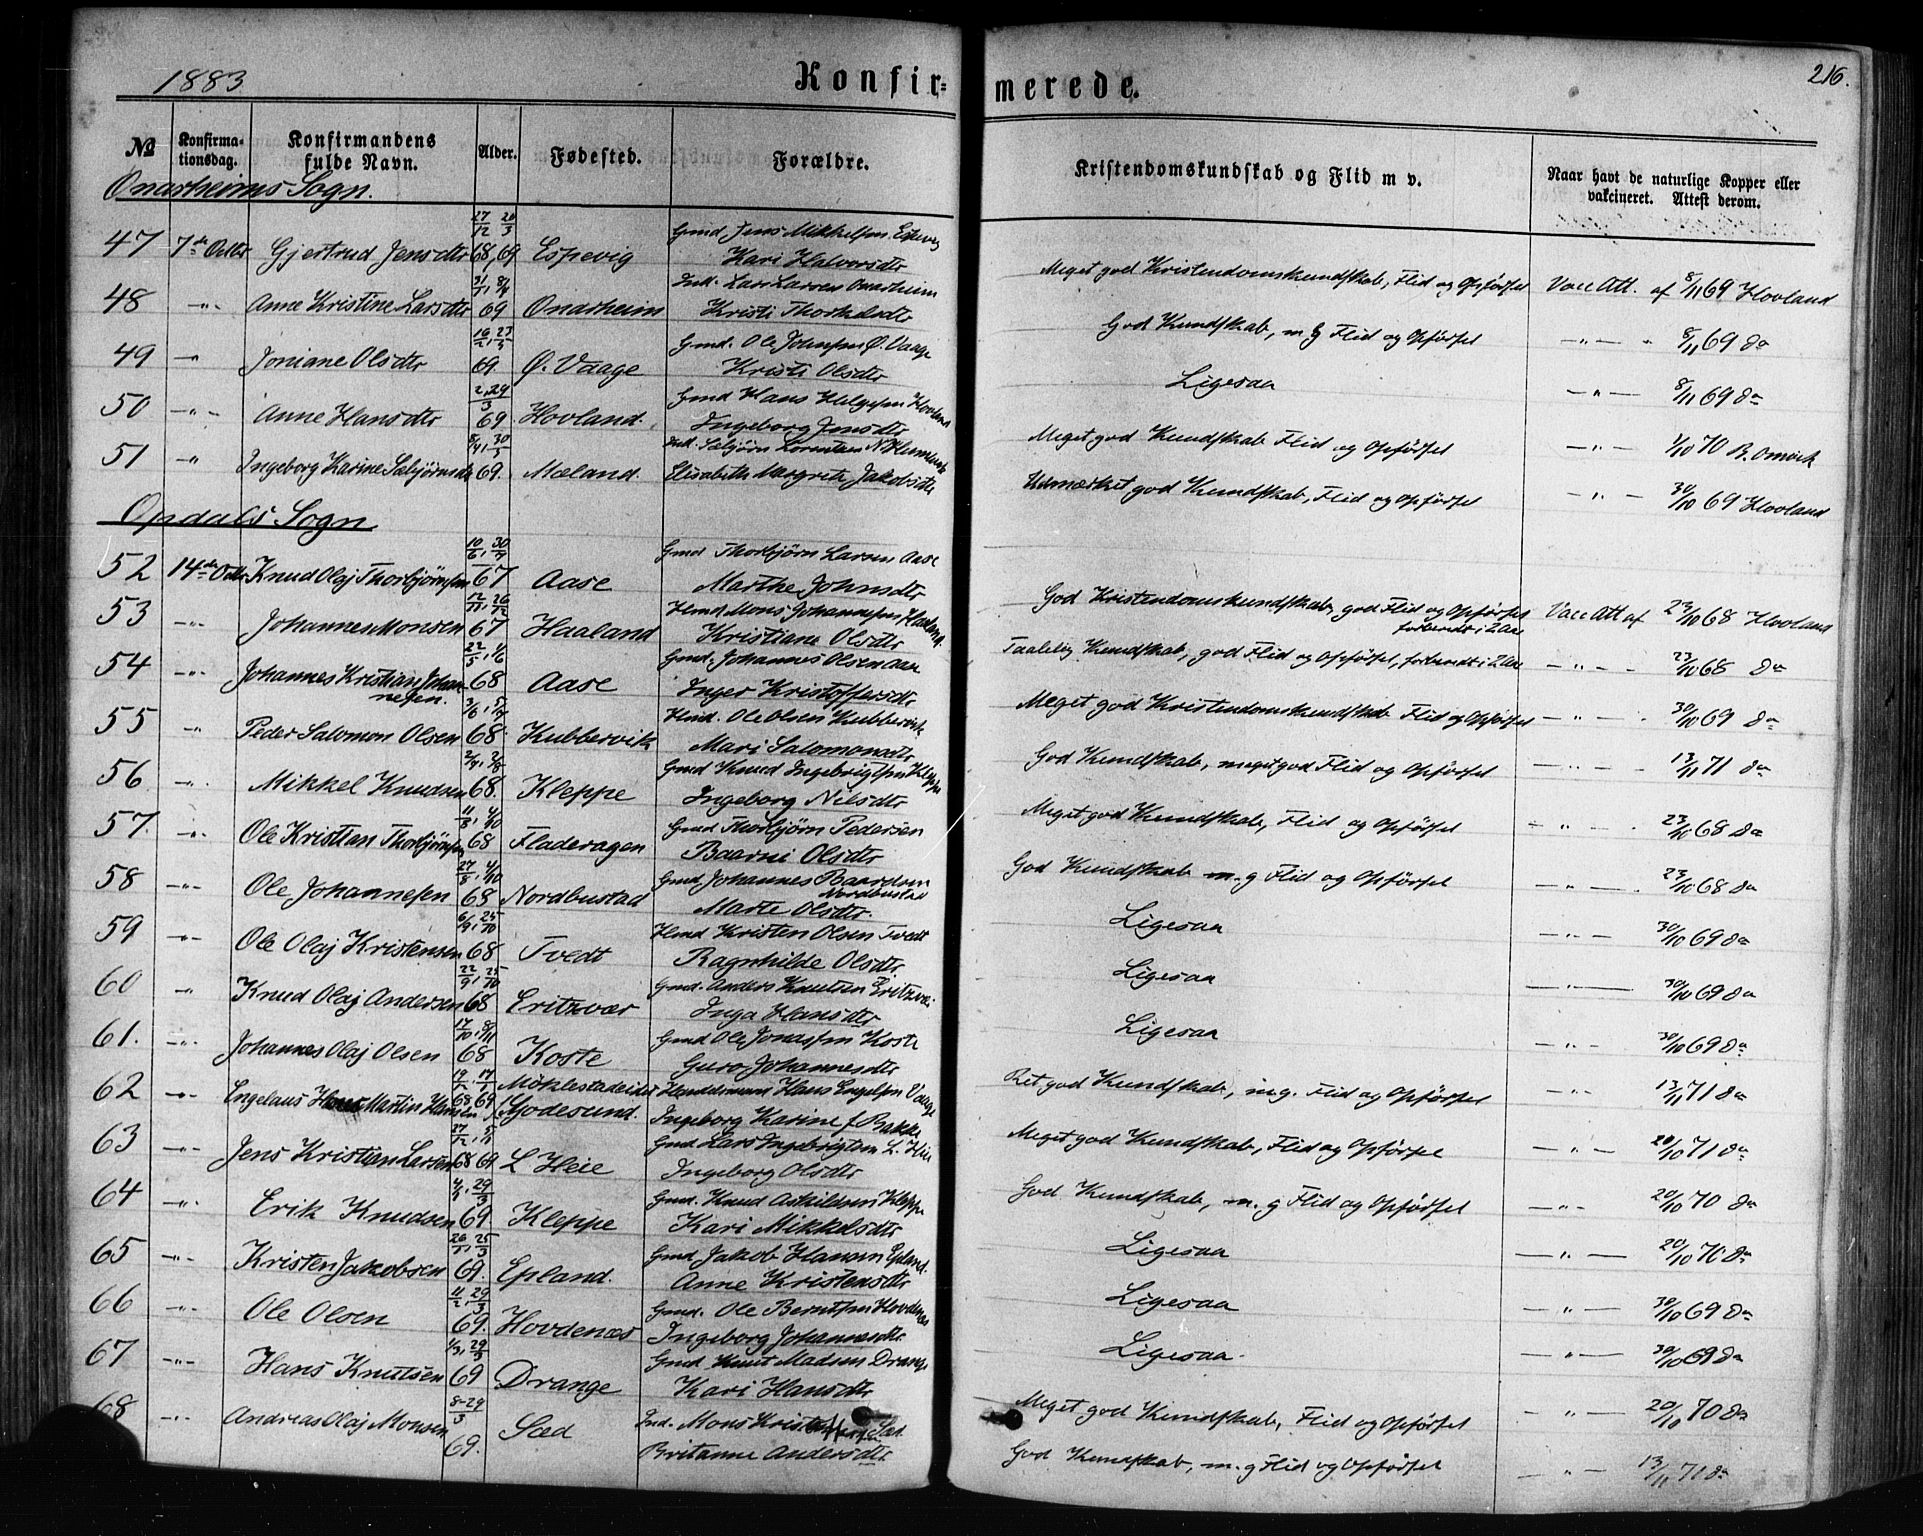 1883 Konfir= merede. 216.
№ Konfirma-tionsdag. Konfirmandens fulde Navn. Alder. Fødested. Forældre. Kristendomskundskab og Flid m v. Naar havt de naturlige Kopper eller vakcineret. Attest derom.
Onarheims Sogn.
47 7de Octbr Gjertrud Jensdtr 27/12 68, 26/3 69 Espevig Gmd Jens Mikkelsen Espevig
Kari Halvorsdtr Meget god Kristendomskundskab, Flid og Opførsel Vacc Att. af 8/11 69 Hovland
48 -"- Anne Kristine Larsdtr 31/1, 8/4 69 Onarheim Ind. Lars Larsen Onarheim
Kristi Thorkelsdtr God Kundskab, m g Flid og Opførsel -"- 8/11 69 do
49 -"- Joniane Olsdtr 16/2, 23/5 69 Ø. Vaage Gmd. Ole Johnsen Ø. Vaage
Kristi Olsdtr Ligesaa -"- 8/11 69 do
50 -"- Anne Hansdtr 2, 29/3 69 Hovland. Gmd Hans Helgesen Hovland
Ingeborg Jensdtr Meget god Kundskab Flid og Opførsel -"- 1/10 70 B. Omvik
51 " Ingeborg Karine Sæbjørnsdtr 8/4, 30/5 69. Mæland. Ind. Sæbjørn
Elisabeth Margrete Jakobsdtr Udmærket god Kundskab, Flid og Opførsel -"- 30/10 69 Hovland
Opdals Sogn
52 14de Octbr Knud Olaj Thorbjørnsen 10/6, 30/7 67 Aase Gmd Thorbjørn Larsen Aase
Marthe Johnsdtr God Kristendomskundskab, god Flid og Opførsel Vacc Att af 23/10 68 Hovland
forberedt i 2 Aar
53 -"- Johannes Monsen 12/11, 26/12 67 Haaland Hmd Mons Johannessen Haaland.
Kristiane Olsdtr Taalelig Kundskab, god Flid og Opførsel, forberedt i 2 Aar -"- 23/10 68 do
54 -"- Johannes Kristian Johannesen. 22/5, 1/6 68 Aase Gmd. Johannes Olsen Aase
Inger Kristoffersdtr Meget god Kristendomskundskab Flid og Opførsel -"- 30/10 69 do
55 -"- Peder Salomon Olsen 3/6, 5/7 68 Kubbervik Hmd. Ole Olsen Kubbervik
Mari Salomonsdtr God Kundskab, meget god Flid og Opførsel -"- 13/11 71 do
56 -"- Mikkel Knudsen 68. Kleppe Gmd Knud Ingebrigtsen Kleppe
Ingeborg Nilsdtr Meget god Kundskab, Flid og Opførsel -"- 23/10 68 do
57. -"- Ole Kristian Thorbjørnsen 11/8, 4/10 68 Fladeragen Gmd Thorbjørn Pedersen
Baarni Olsdtr God Kundskab m.g Flid og Opførsel -"- 23/10 68 do
58 -"- Ole Johannesen 27/8, 4/10 68 Nordbustad Gmd Johannes Baardsen Nordbustad
Marte Olsdtr. Ligesaa -"- 30/10 69 do
59 -"- Ole Olaj Kristensen 6/9, 25/10 68 Tvedt Hmd Kristen Olsen Tvedt
Ragnhilde Olsdtr Ligesaa -"- 30/10 69 do
60 " Knud Olaj Andersen 22/9, 25/10 68 Eritzvær Gmd. Anders Knutsen Eritzvær
Inga Hansdtr Ligesaa -"- 30/10 69 do
61. -"- Johannes Olaj Olsen 17/10, 8/11 68 Koste Gmd Ole Jonassen Koste
Guro Johannesdtr Ret god Kundskab, m g. Flid og Opførsel -"- 13/11 71 do
62 -"- Ingelaus Hans Martin Hansen 68 69 Gjødesund. Hans Engelsen Vaage
Ingeborg Karine f Bakke Meget god Kundskab, Flid og Opførsel -"- 20/10 71 do
63 -"- Jens Kristian Larsen 27/12 68 69 L Heie Gmd Lars Ingebrigtsen L. Heie
Ingeborg Olsdtr God Kundskab, m. g Flid og Opførsel -"- 20/10 70 do
64 -"- Erik Knudsen 29/3 69 Kleppe Gmd. Knud Askildsen Kleppe
Kari Mikkelsdtr Ligesaa -"- 20/10 70 do
65 -"- Kristen Jakobsen 26/1, 25/3 69. Epland. Gmd Jakob Hansen Epland.
Anne Kristensdtr Ligesaa -"- 30/10 69 do
66 -"- Ole Olsen 11/2, 29/3 69. Hovdenæs Gmd. Ole Berntsen Hovdenæs
Ingeborg Johannesdtr Ligesaa -"- 30/10 69 do
67 -"- Hans Knutsen 1/3, 29/3 69 Drange Gmd Knut Madsen Drange
Kari Hansdtr Meget god Kundskab, Flid og Opførsel -"- 20/10 70 do
68 -"- Andreas Olaj Monsen 8-29/3 69. Sæd Ind. Mons Sæd
Britanne Andersdtr God Kundskab, m. g Flid og Opførsel -"- 13/11 71 do